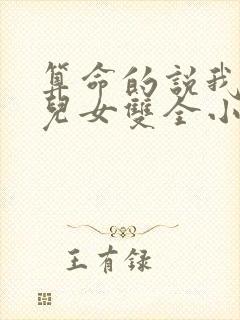 算命的説我
兒女雙全小
王有録